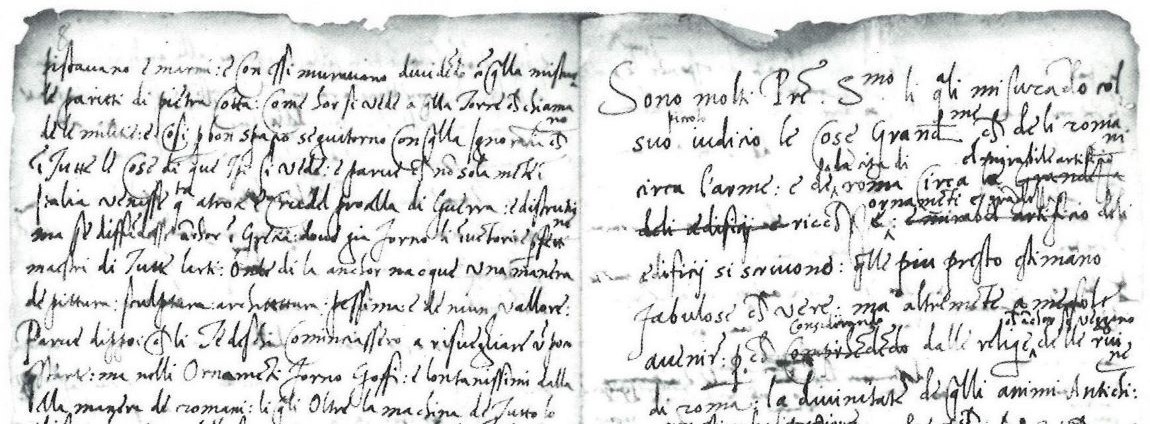 pistavano e marmi: e con essi muravano dividēdo cō q̄lla mistur
le parieti di pietra cotta: come hor si vede a q̄lla Torre ch̄ chiama
no
de le militie: e cosi p bon spatio seguitorno con q̄lla ignorātia ch̄
ī tutte le cose di que tpi si vede: e parve ch̄ nō solamēte ī
Italia venisse q̄sta atroce e crudel procella di Guerra: e distruti
ne
ma se diffundesse anchor ī Grecia: dove gia forno li īvētori e pfetti
maestri di tutte larti: Onde di la anchor nacque una manera
de pittura: sculptura: architettura: pessima: e de niun vallore:
Parve dippoi ch̄ li Tedeschi comminciassero a risvegliare ū poco
larte: ma nelli Ornamēti forno Goffi: e lontanissimi dalla
bella manera de romani: li q̄li Oltre la machina de tutto lo
Sono molti Prē. Smo li q̄li misurādo col
suo piccolo iudicio le cose Grandme ch̄ de li roma
ni
circa larme: e de la cita di roma circa el mirabile artificio
deli edificij e ricch: ornamēti e mirabel artificio deli
edificij si scrivono: q̄lle piu presto estimano
fabulose ch̄ vere: ma altremēte a me sole
avenire: pch̄ Considerando dalle reliq̄e ch̄ anchor si veggano delle rui
ne
di roma: la divinitate de q̄lli animi Antichi: